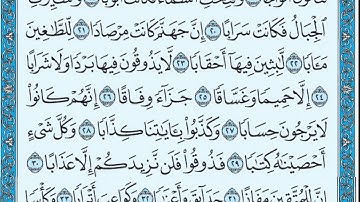 الْجِبَالُ فَكَانَتْ سَرَابًا ٢٠ إِنَّ جَهَنَّمَ كَانَتْ مِرْصَادًا ٢١ لِلطَّاغِينَ
مَـَٔابًا ٢٢ لَّابِثِينَ فِيهَآ أَحْقَابًا ٢٣ لَّا يَذُوقُونَ فِيهَا بَرْدًا وَلَا شَرَابًا
٢٤ إِلَّا حَمِيمًا وَغَسَّاقًا ٢٥ جَزَآءً وِفَاقًا ٢٦ إِنَّهُمْ كَانُوا۟
لَا يَرْجُونَ حِسَابًا ٢٧ وَكَذَّبُوا۟ بِـَٔايَـٰتِنَا كِذَّابًا ٢٨ وَكُلَّ شَىْءٍ
أَحْصَيْنَـٰهُ كِتَـٰبًا ٢٩ فَذُوقُوا۟ فَلَن نَّزِيدَكُمْ إِلَّا عَذَابًا ٣٠
إِنَّ لِلْمُتَّقِينَ مَفَازًا ٣١ حَدَآئِقَ وَأَعْنَـٰبًا ٣٢ وَكَوَاعِبَ أَتْرَابًا ٣٣ وَكَأْسًا